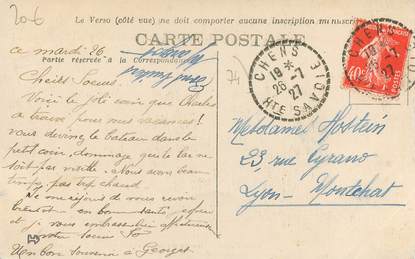 206
Le Verso (côté vue) ne doit comporter aucune inscription manuscrite
CARTE POSTALE
Partie réservée à la Correspondance
ce mardi 26
Cheits Soeurs.
Voici le joli coin que Charles
a trouvé pour nous vacances!
vous devinez le bateau dans le
petit coin, dommage que le lac ne
soit pas visible. nous avons beau
temps, pas trop chaud.
Me réjouis de vous revoir
bientôt en bonne santé,
et je vous embrasse affectueusement
votre soeur
Un bon souvenir à Georges
74
CHENS
19 *
26-7
27
HTE SAVOIE
CHENS
27
40c
Mesdames Hostein
23, rue Cyrano
Lyon-Montchat